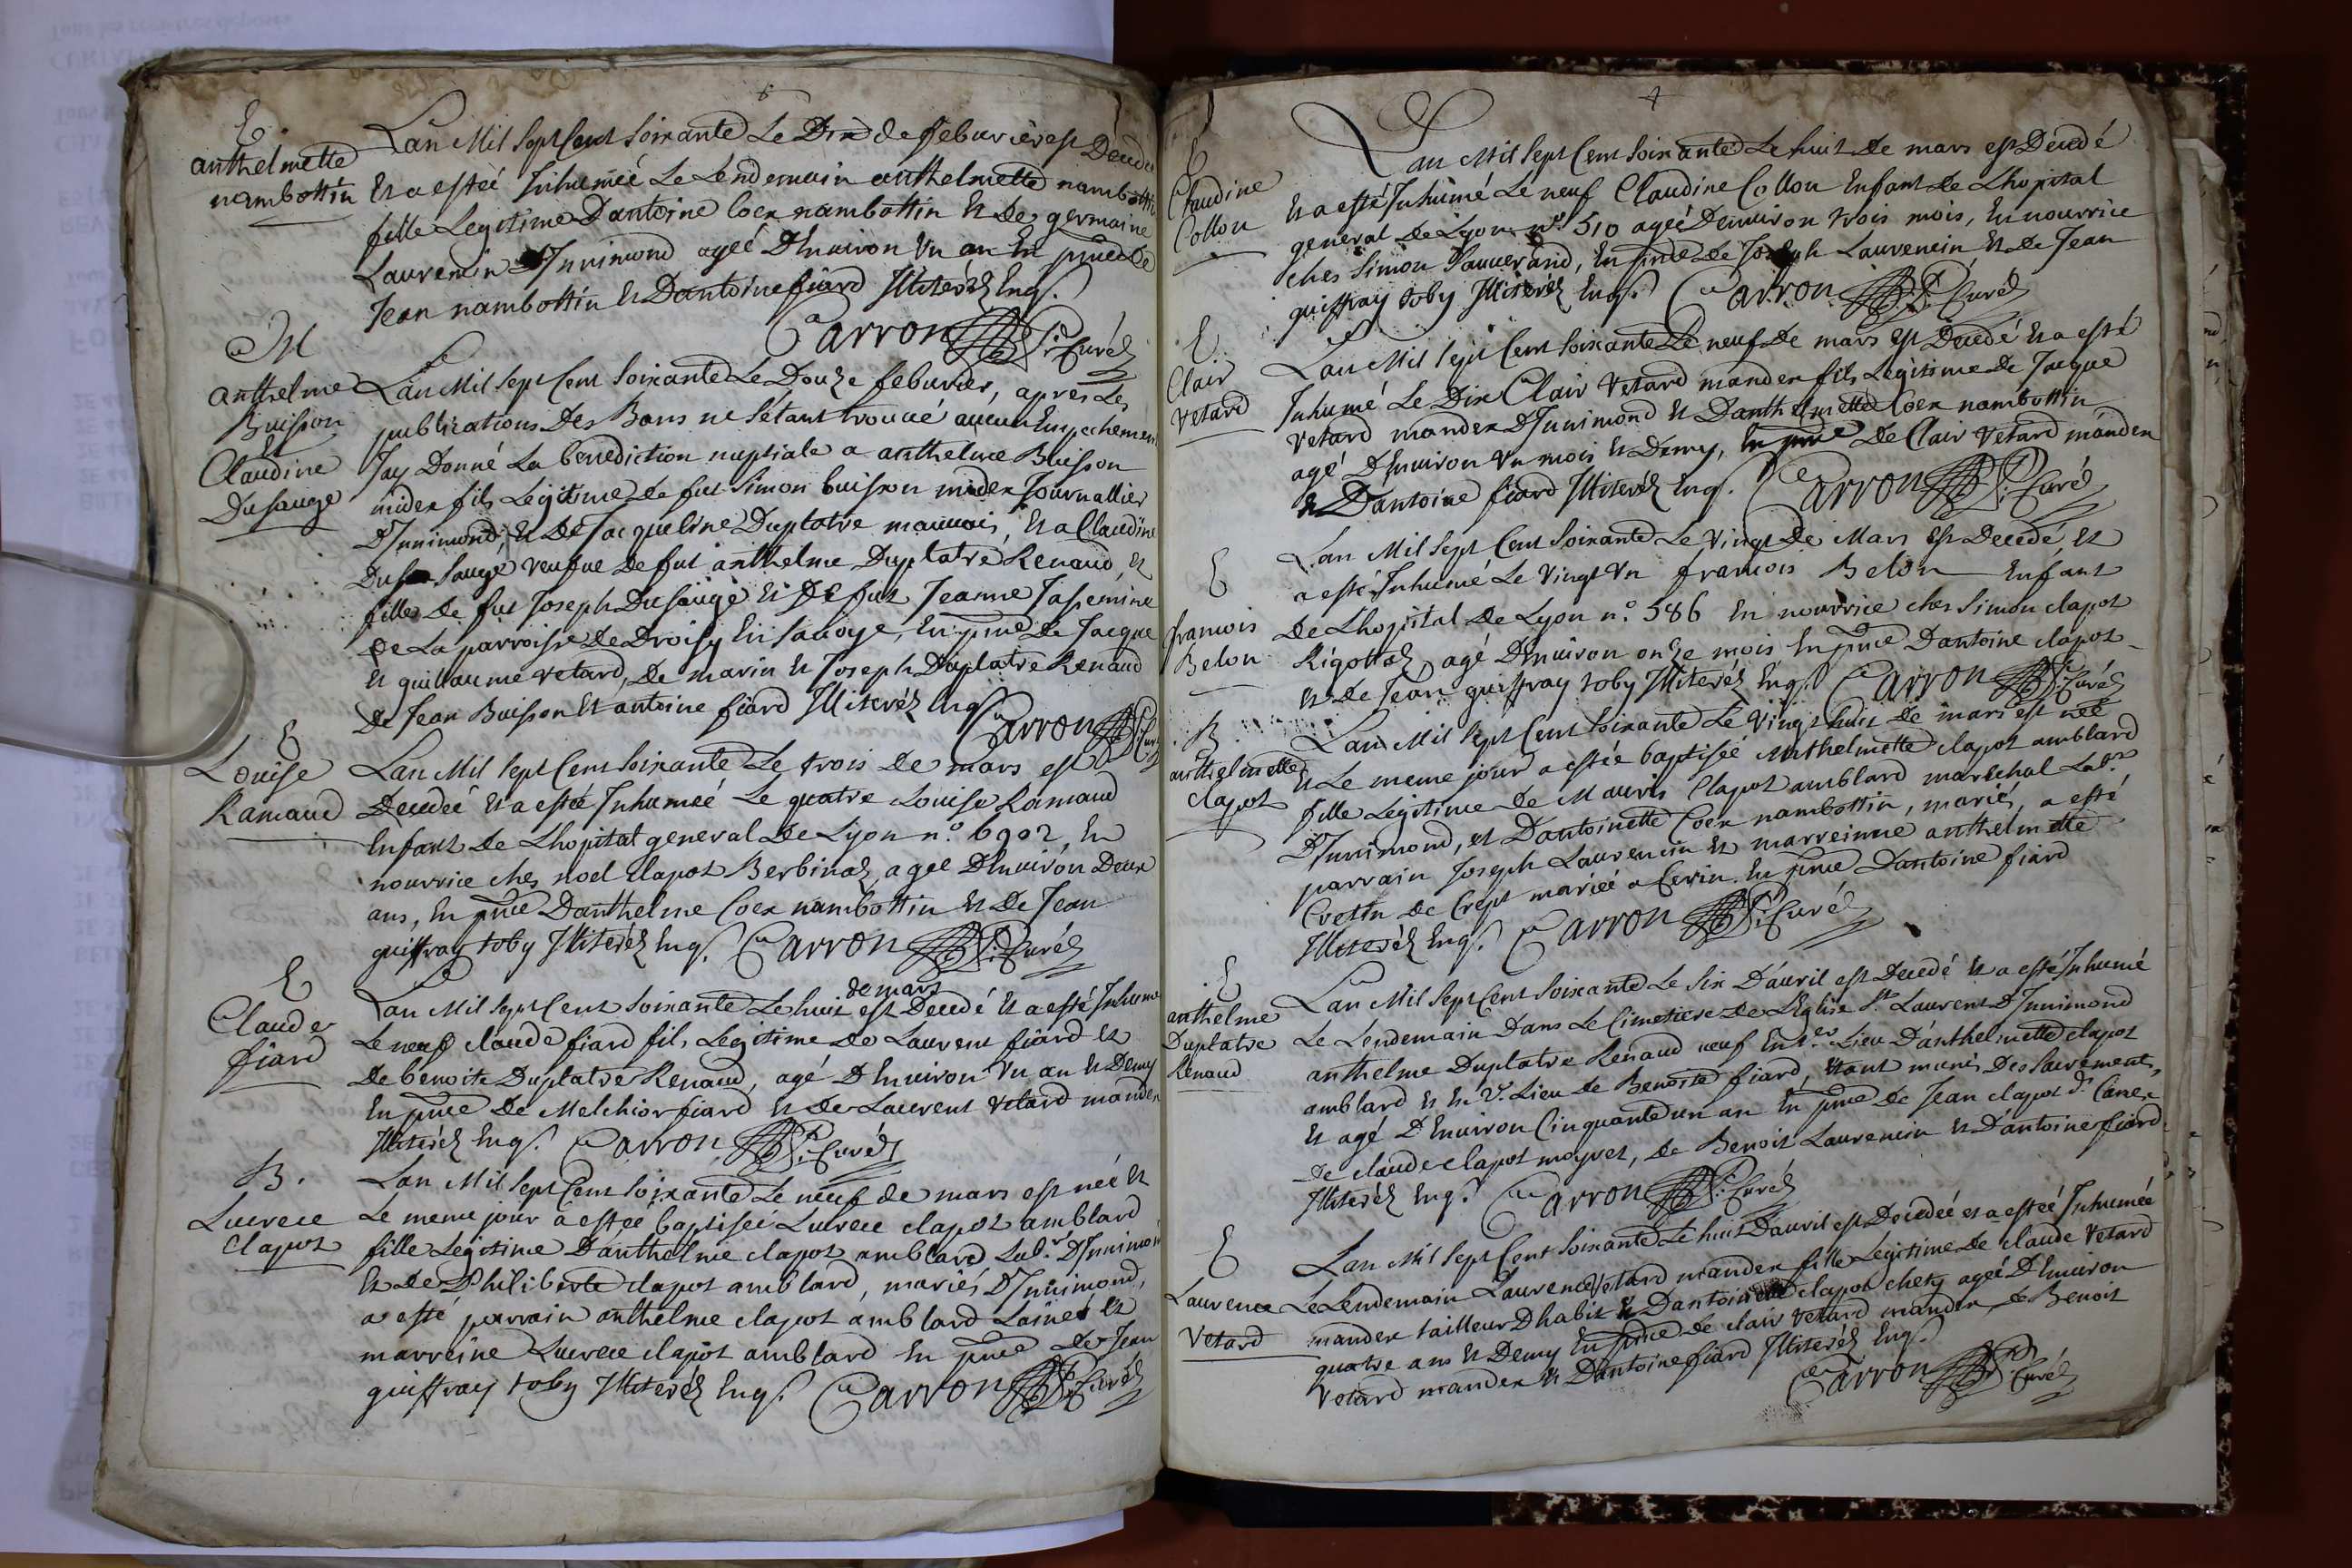 E
anthelmette
nambottin
Lan Mil Sept Cent Soixante Le Dix de febuvrier est Decedee
Et a estéé Inhuméé Le Lendemain anthelmette nambottin
fille Legitime Dantoine Coex nambottin Et De germaine
Laurencin D'Innimond agéé D'Enuiron Vn an En pnce De
Jean nambottin Et Dantoine fiard Illiteréz Enqs.
Carron Curé
M
anthelme
Buisson
Et
Claudine
Dusauge
Lan Mil Sept Cent Soixante Le Douze febuvrier, apres Les
publications Des Bans ne S'étant trouué aucun Empechement
Jay Donné La benediction nuptiale a anthelme Buisson
miden fils Legitime de fut Simon buisson miden Journallier
D'Innimond, Et De Jacqueline Duplatre mauuais, Et a Claudine
Dusauge veufue de fut anthelme Duplatre Renaud, Et
fille de fut Joseph Dusauge Et De fut Jeanne Jasemine
De La parroisse De Droisy En Sauoye, En pnce De Jacque
Et guillaume vetard, De marin Et Joseph Duplatre Renaud
De Jean Buisson Et antoine fiard Illiteréz Enqs
Carron Curé
E
Louise
Ramaud
Lan Mil Sept Cent Soixante Le trois De mars est
Decedéé Et a estéé Inhuméé Le quatre Louise Ramaud
Enfant De Lhopital general De Lyon n.º 6902, En
nourrice ches noel Clapot Berbinaz, agéé D'Enuiron Deux
ans, En pnce Danthelme Coex nambottin Et De Jean
guiffray toby Illiteréz Enqs. Carron Curé
E
Claude
fiard
Lan Mil Sept Cent Soixante Le huit de mars est Decedé Et a esté Inhumé
Le neuf claude fiard fils Legitime De Laurent fiard Et
De benoite Duplatre Renaud, agé D'Enuiron Vn an Et Demy
En pnce De Melchior fiard Et De Laurent Vetard manden
Illiteréz Enqs. Carron Curé
B.
Lucrece
Clapot
Lan Mil Sept Cent Soixante Le neuf de mars est néé Et
Le meme jour a estéé baptiséé Lucrece clapot amblard
fille Legitime Danthelme clapot amblard Lab.r D'Innimond
Et de Philiberte clapot amblard, mariés D'Innimond,
a esté parrain anthelme clapot amblard Lainé Et
marreine Lucrece clapot amblard En pnce de Jean
guiffray toby Illiteréz Enqs. Carron Curé
4
E
Claudine
Collon
Lan Mil Sept Cent Soixante Le huit De mars est Decedé
Et a esté Inhumé Le neuf Claudine Collon Enfant De Lhopital
general De Lyon n.º 510 agéé Denuiron trois mois, En nourrice
ches Simon Sauuerand, En pnce De Joseph Laurencin, Et De Jean
guiffray toby Illiteréz Enqs. Carron Curé
E
Clair
Vetard
Lan Mil Sept Cent Soixante Le neuf De mars est Decedé Et a esté
Inhumé Le Dix Clair Vetard manden fils Legitime De Jacque
vetard manden D'Innimond Et Danthelmette Coex nambottin
agé D'Enuiron Vn mois Et Demy, En pnce De Clair Vetard manden
Et Dantoine fiard Illiteréz Enqs. Carron Curé
E
francois
Belon
Lan Mil Sept Cent Soixante Le Vingt De Mars Est Decedé, Et
a esté Inhumé Le Vingt Vn francois Belon Enfant
De Lhopital De Lyon n.º 586 En nourrice ches Simon clapot
Rigottaz, agé D'Enuiron onze mois En pnce Dantoine clapot
Et De Jean guiffray toby Illiteréz Enqs. Carron Curé
B
anthelmette
clapot
Lan Mil Sept Cent Soixante Le Vingt huit De mars est néé
Et Le meme jour a estéé baptiséé anthelmette clapot amblard
fille Legitime De Mauris Clapot amblard marechal Lab.r
D'Innimond, et Dantoinette Coex nambottin, mariés, a esté
parrain Joseph Laurencin Et marreinne anthelmette
Crettin de Crept mariéé a Cerin En pnce Dantoine fiard
Illiteréz Enqs. Carron Curé
E
anthelme
Duplatre
Renaud
Lan Mil Sept Cent Soixante Le Six D'auril est Decedé Et a esté Inhumé
Le Lendemain Dans Le Cimetiere De L'Eglise St. Laurent D'Innimond
anthelme Duplatre Renaud ueuf En 1.er Lieu D'anthelmette clapot
amblard Et En 2.e Lieu de Benoite fiard, Etant muni Des Sacrements,
Et agé D'Enuiron Cinquante un an En pnce De Jean clapot
De claude clapot moyret, de Benoit Laurencin Et D'antoine fiard
Illiteréz Enqs. Carron Curé
E
Laurence
Vetard
Lan Mil Sept Cent Soixante Le huit D'auril est Decedéé et a estéé Inhuméé
Le Lendemain Laurence Vetard manden fille Legitime De claude Vetard
manden tailleur Dhabit Et Dantoinette clapot chety agéé D'Enuiron
quatre ans Et Demy En pnce de clair Vetard manden, de Benoit
Vetard manden Et Dantoine fiard Illiteréz Enqs.
Carron Curé